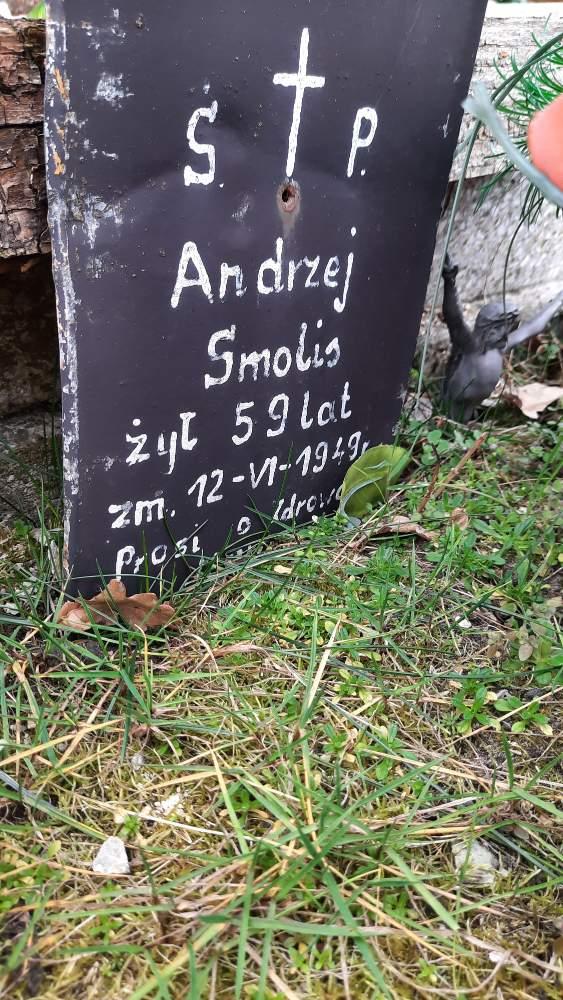 Ś. P.
Andrzej
Smolis
żył 59 lat
zm. 12-VI-1949r
Prosi o